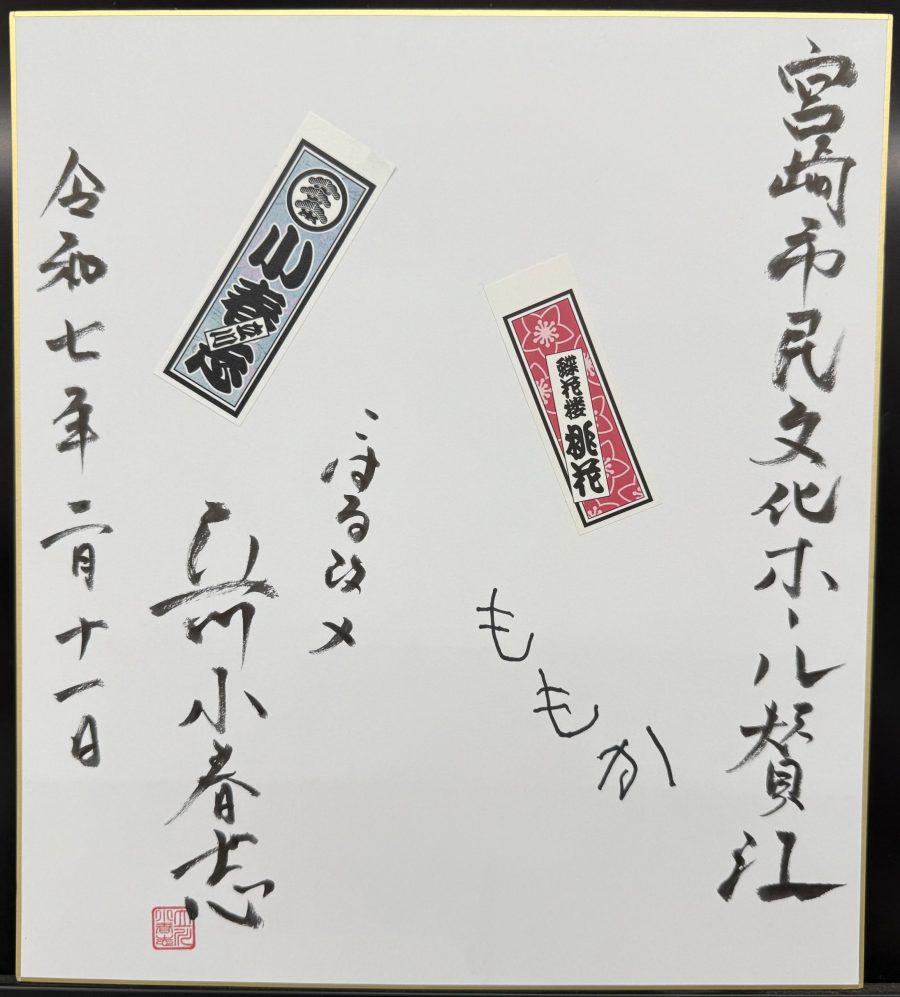 宮崎市民文化ホール賛江
蝶花楼
桃花
ももか
小春志
立川
こはる改メ
立川小春志
令和七年二月十一日